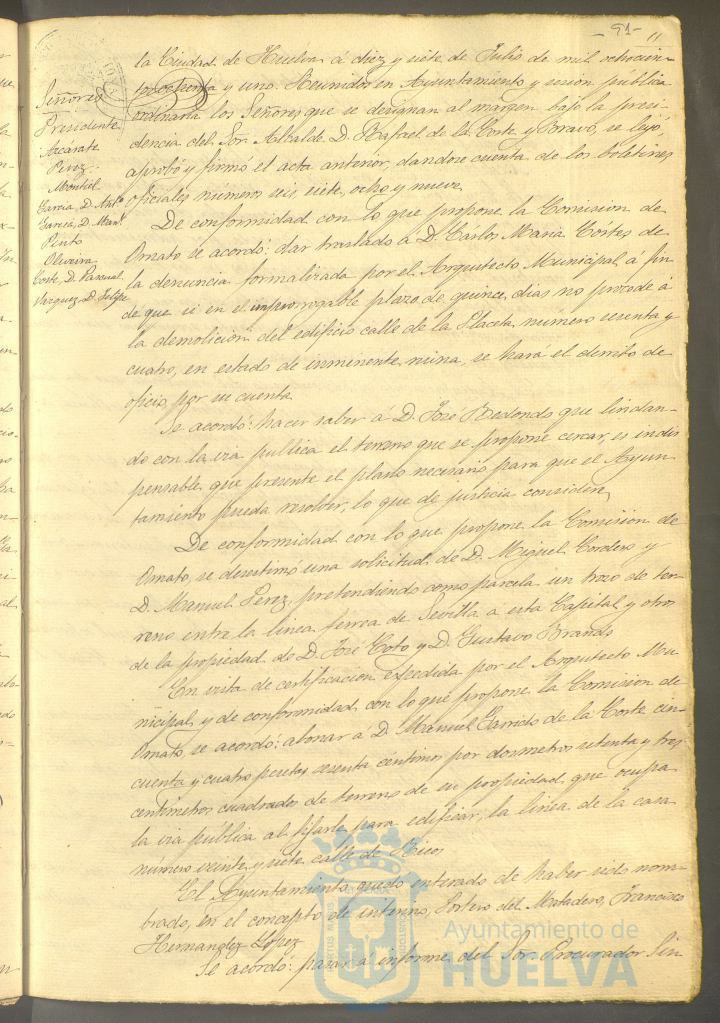 - 91 -
la Ciudad de Huelva á diez y siete de Julio de mil ochocien-
tos ochenta y uno. Reunidos en Ayuntamiento y sesión pública
ordinaria los Señores que se designan al margen bajo la presi-
dencia del Sor. Alcalde D. Rafael de la Corte y Bravo, se leyó,
aprobó y firmó el acta anterior, dandose cuenta de los boletines
oficiales números seis, siete, ocho y nueve.
Señores
Presidente
Azcárate
Perez
Montiel
García, D. Antº
García, D. Manl.
Pinto
Oliveira
Corte, D. Pascual
Vazquez, D. Felipe
De conformidad con lo que propone la Comision de
Ornato se acordó: dar traslado á D. Cárlos Maria Cortes de
la denuncia formalizada por el Arquitecto Municipal á fin
de que si en el improrrogable plazo de quince dias no procede á
la demolicion del edificio calle de la Placeta número sesenta y
cuatro, en estado de inminente ruina, se hará el derribo de
oficio por su cuenta.
Se acordó: hacer saber á D. José Redondo que lindan-
do con la via publica el terreno que se propone cercar, es indis
pensable que presente el plano necesario para que el Ayun
tamiento pueda resolver, lo que de justicia considere,
De conformidad con lo que propone la Comision de
Ornato, se desestimó una solicitud de D. Miguel Cordero y
D. Manuel Perez, pretendiendo como parcela un trozo de ter-
reno entre la linea ferrea de Sevilla a esta Capital y otros
de la propiedad de D. José Coto y D. Gustavo Brands
En vista de certificacion expedida por el Arquitecto Mu-
nicipal y de conformidad con lo que propone la Comision de
Ornato, se acordó: abonar á D. Manuel Garrido de la Corte cin-
cuenta y cuatro pesetas sesenta céntimos por dos metros setenta y tres
centímetros cuadrados de terreno de su propiedad que ocupa
la via pública al fijarle para edificar, la linea de la casa
número veinte y siete calle de Rico.
El Ayuntamiento quedó enterado de haber sido nom-
brado, en el concepto de interino, Portero del Matadero, Francisco
Hernandez Lopez
Se acordó: pasar á informe del Sor. Procurador Sin
Ayuntamiento de
HUELVA